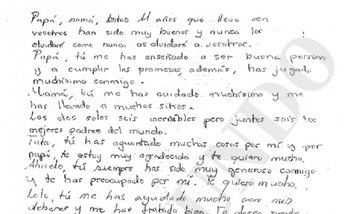 Papá, mamá, estos 11 años que llevo con
vosotros han sido muy buenos y nunca los
olvidaré como nunca os olvidaré a vosotros.
Papá, tú me has enseñado a ser buena persona
y a cumplir las promesas, además, has jugado
muchísimo conmigo.
Mamá, tú me has cuidado muchísimo y me
has llevado a muchos sitios.
Los dos solos sois increíbles pero juntos sois los
mejores padres del mundo.
Tata, tú has aguantado muchas cosas por mí y por
papá, te estoy muy agradecido y te quiero mucho.
Abuelo, tú siempre has sido muy generoso conmigo
y te has preocupado por mí. Te quiero mucho.
Lolo, tú me has ayudado mucho con mis
deberes y me has tratado bien. Te